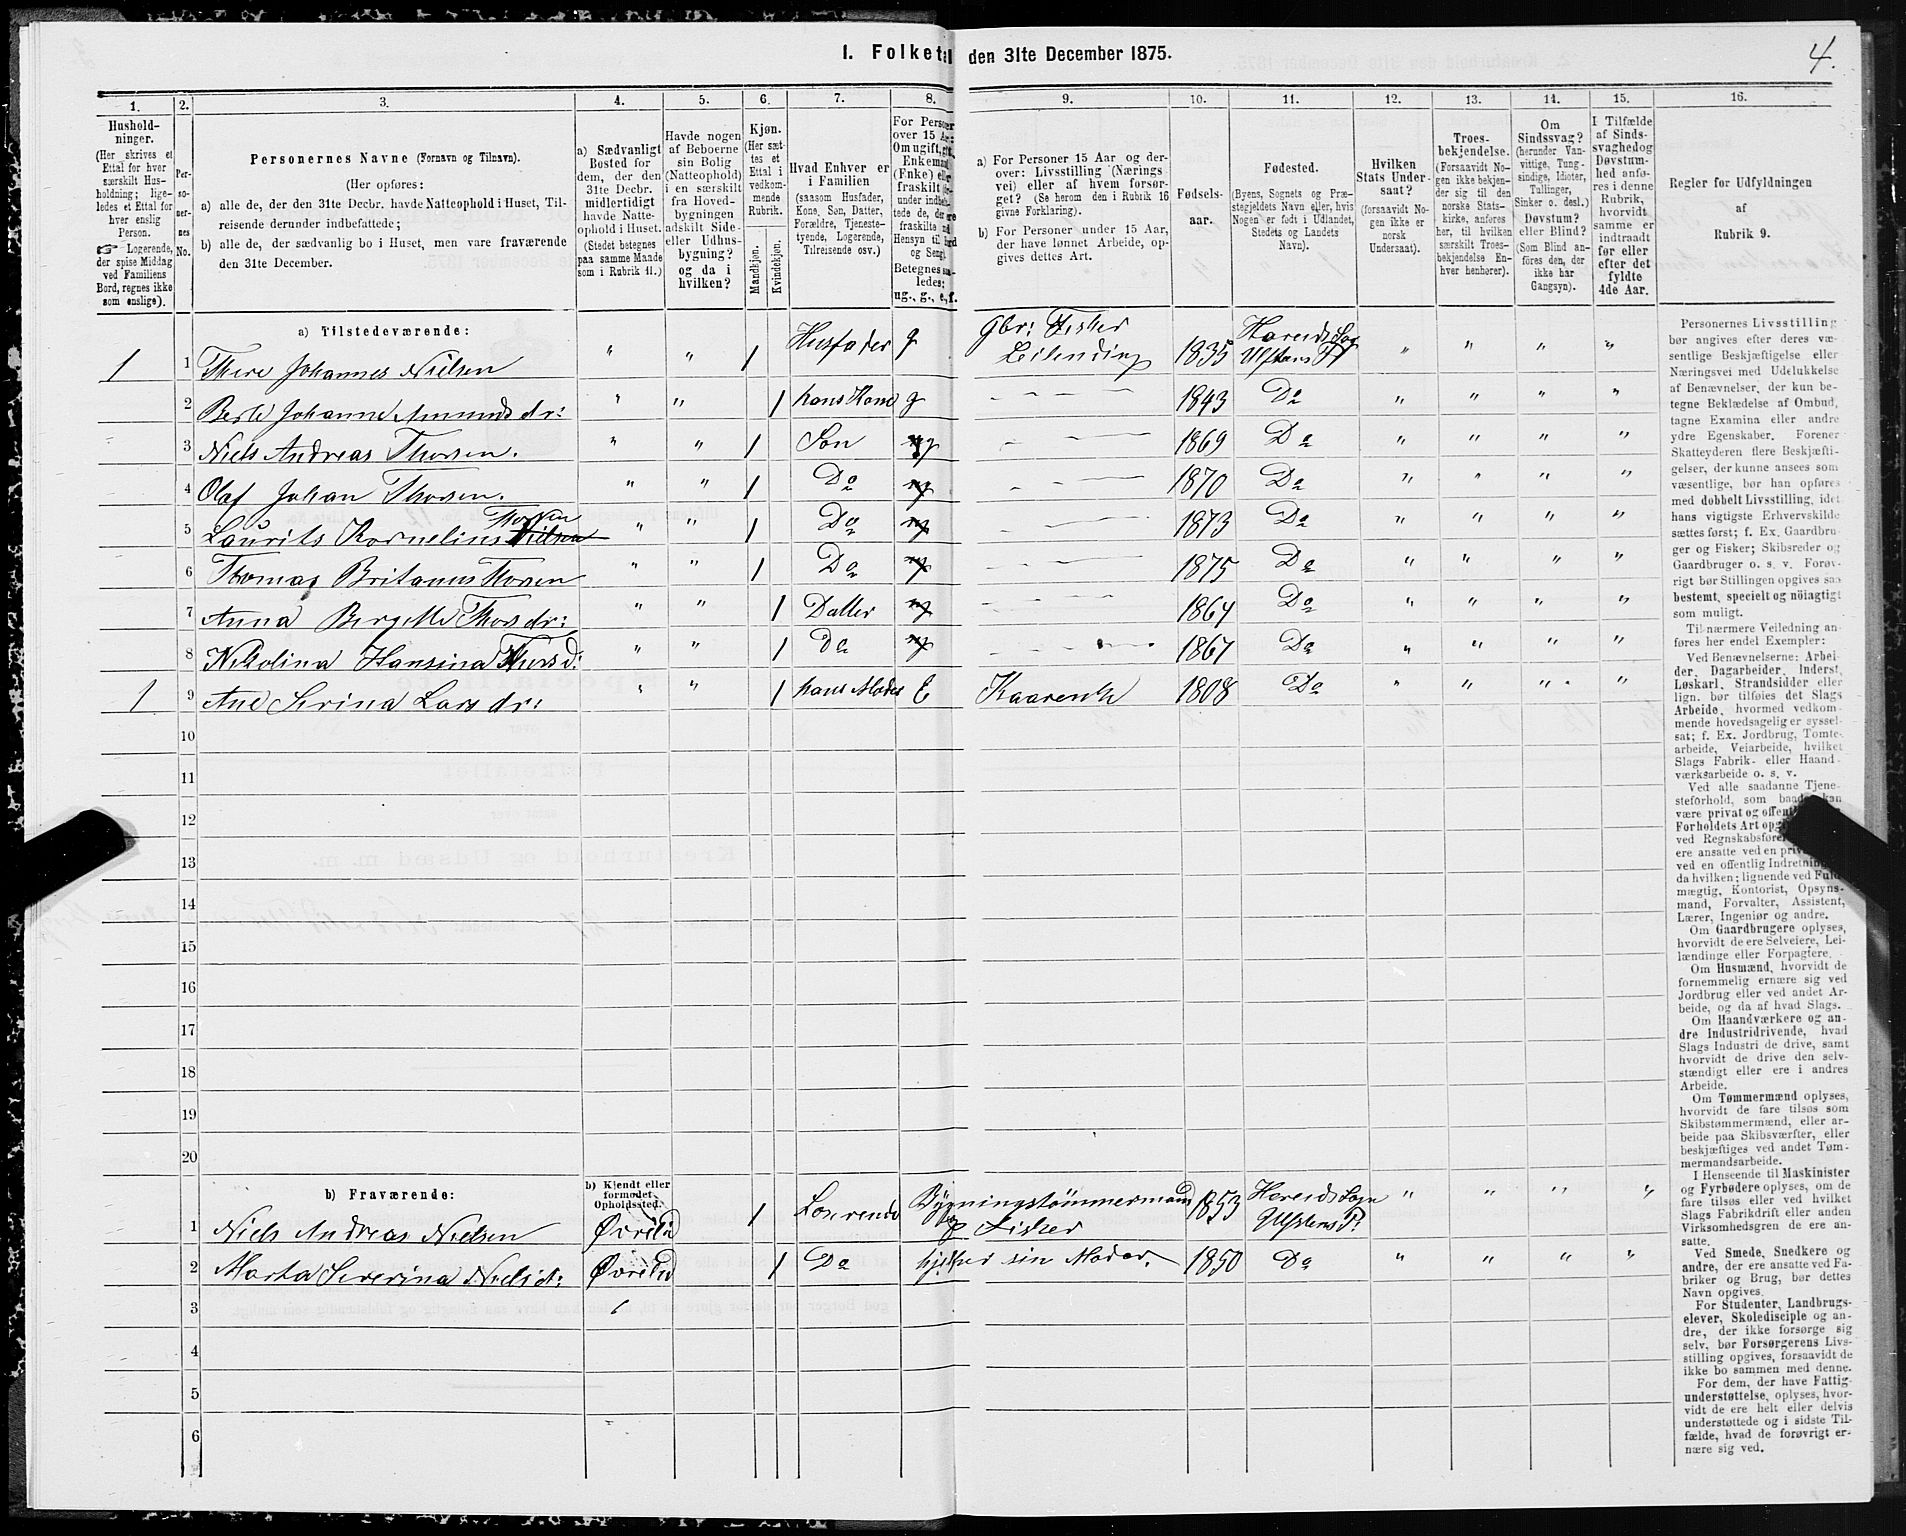 1. Folketal den 31te December 1875.
4.
1. 2. 3. 4. 5. 6. 7. 8. 9. 10. 11. 12. 13. 14. 15. 16.
Hushold-
ninger.
(Her skrives et
Ettal for hver
særskilt Hus-
holdning; lige-
ledes et Ettal for
hver enslig
Person.
☞ Logerende,
der spise Middag
ved Familiens
Bord, regnes ikke
som enslige).
Per-
so-
ner-
nes
No.
Personernes Navne (Fornavn og Tilnavn).
(Her opføres:
a) alle de, der den 31te Decbr. havde Natteophold i Huset, Til-
reisende derunder indbefattede;
b) alle de, der sædvanlig bo i Huset, men vare fraværende
den 31te December.
a) Sædvanligt
Bosted for
dem, der den
31te Decbr.
midlertidigt
havde Natte-
ophold i Huset.
(Stedet betegnes
paa samme Maade
som i Rubrik 11.)
Havde nogen
af Beboerne
sin Bolig
(Natteophold)
i en særskilt
fra Hoved-
bygningen
adskilt Side-
eller Udhus-
bygning?
og da i
hvilken?
Kjøn.
(Her sæt-
tes et
Ettal i
vedkom-
mende
Rubrik.
Mandkjøn.
Kvindekjøn.
Hvad Enhver er
i Familien
(saasom Husfader,
Kone, Søn, Datter,
Forældre, Tjeneste-
tyende, Logerende,
Tilreisende osv.)
For Personer
over 15 Aar:
Om ugift, gift,
Enkemand
(Enke) eller
fraskilt
Betegnes saa-
ledes:
ug., g., e, f.
a) For Personer 15 Aar og der-
over: Livsstilling (Nærings
vei) eller af hvem forsør-
get? (Se herom den i Rubrik 16
givne Forklaring).
b) For Personer under 15 Aar,
der have lønnet Arbeide, op-
gives dettes Art.
Fødsels-
aar.
Fødested.
(Byens, Sognets og Præ-
stegjeldets Navn eller, hvis
Nogen er født i Udlandet,
Stedets og Landets
Navn).
Hvilken
Stats Under-
saat?
(forsaavidt No-
gen ikke er
norsk
Undersaat).
Troes-
bekjendelse.
(Forsaavidt No-
gen ikke bekjen-
der sig til den
norske Stats-
kirke, anføres
her, til hvilken
særskilt Troes-
bekjendelse En-
hver henhører).
Om
Sindssvag?
(herunder Van-
vittige, Tung-
sindige, Idioter,
Tullinger,
Sinker o. desl.)
Døvstum?
eller Blind?
(Som Blind an-
føres den, der
ikke har
Gangsyn).
I Tilfælde
af Sinds-
svaghed og
Døvstum-
hed anfø-
res i denne
Rubrik,
hvorvidt
samme er
indtraadt
før eller
efter det
fyldte
4de Aar.
Regler for Udfyldningen
af
Rubrik 9.
a) Tilstedeværende:
1 1 Thore Johannes Nielsen " " 1 Husfader g Gbr: Fisker Leilending 1835 Hareids Sogn Ulfstens Pr " " " "
2 Berte Johanne Amunds dr: " " 1 hans Kone g 1843 Do " " " "
3 Niels Andreas Thorsen. " " 1 Søn 1869 Do " " " "
4 Olaf Johan Thorsen. " " 1 Do 1870 Do " " " "
5 Laurits Kornelius Nielsen Thorsen " " 1 Do 1873 Do " " " "
6 Thomas Britanus Thorsen " " 1 Do 1875 Do " " " "
7 Anna Bergitte Thors dr: " " 1 Datter 1864 Do " " " "
8 Nikolina Hansina Thorsd: " " 1 Do 1867 Do " " " "
1 9 Ane Serina Lars dr: " " 1 hans Moder E Kaarenke 1808 Do " " " "
10
11
12
13
14
15
16
17
18
19
20
b) Fraværende:
b) Kjendt eller
formodet
Opholdssted.
1 Niels Andreas Nielsen Øvrelid 1 Loserende Bygningstömmermand og Fisker 1853 Hareids Sogn Ulfstens Pr " " " "
2 Marta Severina Niels dr: Øvrelid 1 Do hjelper sin Moder. 1850 Do " " " "
3
4
5
6
Personernes Livsstilling
bør angives efter deres væ-
sentlige Beskjæftigelse eller
Næringsvei med Udelukkelse
af Benævnelser, der kun be-
tegne Beklædelse af Ombud,
tagne Examina eller andre
ydre Egenskaber. Forener
Skatteyderen flere Beskjæfti-
gelser, der kunne ansees som
væsentlige, bør han opføres
med dobbelt Livsstilling, idet
hans vigtigste Erhvervskilde
sættes først; f. Ex. Gaardbru-
ger og Fisker; Skibsreder og
Gaardbruger o. s. v. Forøv-
rigt bør Stillingen opgives saa
bestemt, specielt og nöiagtigt
som muligt.
Til nærmere Veiledning an-
føres her endel Exempler:
Ved Benævnelserne: Arbei-
der, Dagarbeider, Inderst,
Løskarl, Strandsidder eller
lign. bør tilføies det Slags
Arbeide, hvormed vedkom-
mende hovedsagelig er syssel-
sat; f. Ex. Jordbrug, Tomte-
arbeide, Veiarbeide, hvilket
Slags Fabrik- eller Haand-
værksarbeide o. s. v.
Ved alle saadanne Tjene-
steforhold, som baade kan
være privat og offent
Forholdets Art
ved Regnskabsfører
ere ansatte ved en
ved en offentlig Indretning
da hvilken; lignende ved Fuld-
mægtig, Kontorist, Opsyns-
mand, Forvalter, Assistent,
Lærer, Ingeniør og andre.
Om Gaardbrugere oplyses,
hvorvidt de ere Selveiere, Lei-
lændinge eller Forpagtere.
Om Husmænd, hvorvidt de
fornemmelig ernære sig ved
Jordbrug eller ved andet Ar-
beide, og da af hvad Slags.
Om Haandværkere og an-
dre Industridrivende, hvad
Slags Industri de drive, samt
hvorvidt de drive den selv-
stændigt eller ere i andres
Arbeide.
Om Tømmermænd oplyses,
hvorvidt de fare tilsøs som
Skibstømmermænd, eller ar-
beide paa Skibsværfter, eller
beskjæftiges ved andet Tøm-
mermandsarbeide.
I Henseende til Maskinister
og Fyrbødere oplyses, om de
fare tilsøs eller ved hvilket
Slags Fabrikdrift eller anden
Virksomhedsgren de ere an-
satte.
Ved Smede, Snedkere og
andre, der ere ansatte ved Fa-
briker og Brug, bør dettes
Navn opgives.
For Studenter, Landbrugs-
elever, Skoledisciple og an-
dre, der ikke forsørge sig
selv, bør Forsørgerens Livs-
stilling opgives, forsaavidt de
ikke bo sammen med denne.
For dem, der have Fattig-
understøttelse, oplyses, hvor-
vidt de ere helt eller delvis
understøttede og i sidste Til-
fælde, hvad de forøvrigt er-
nære sig ved.